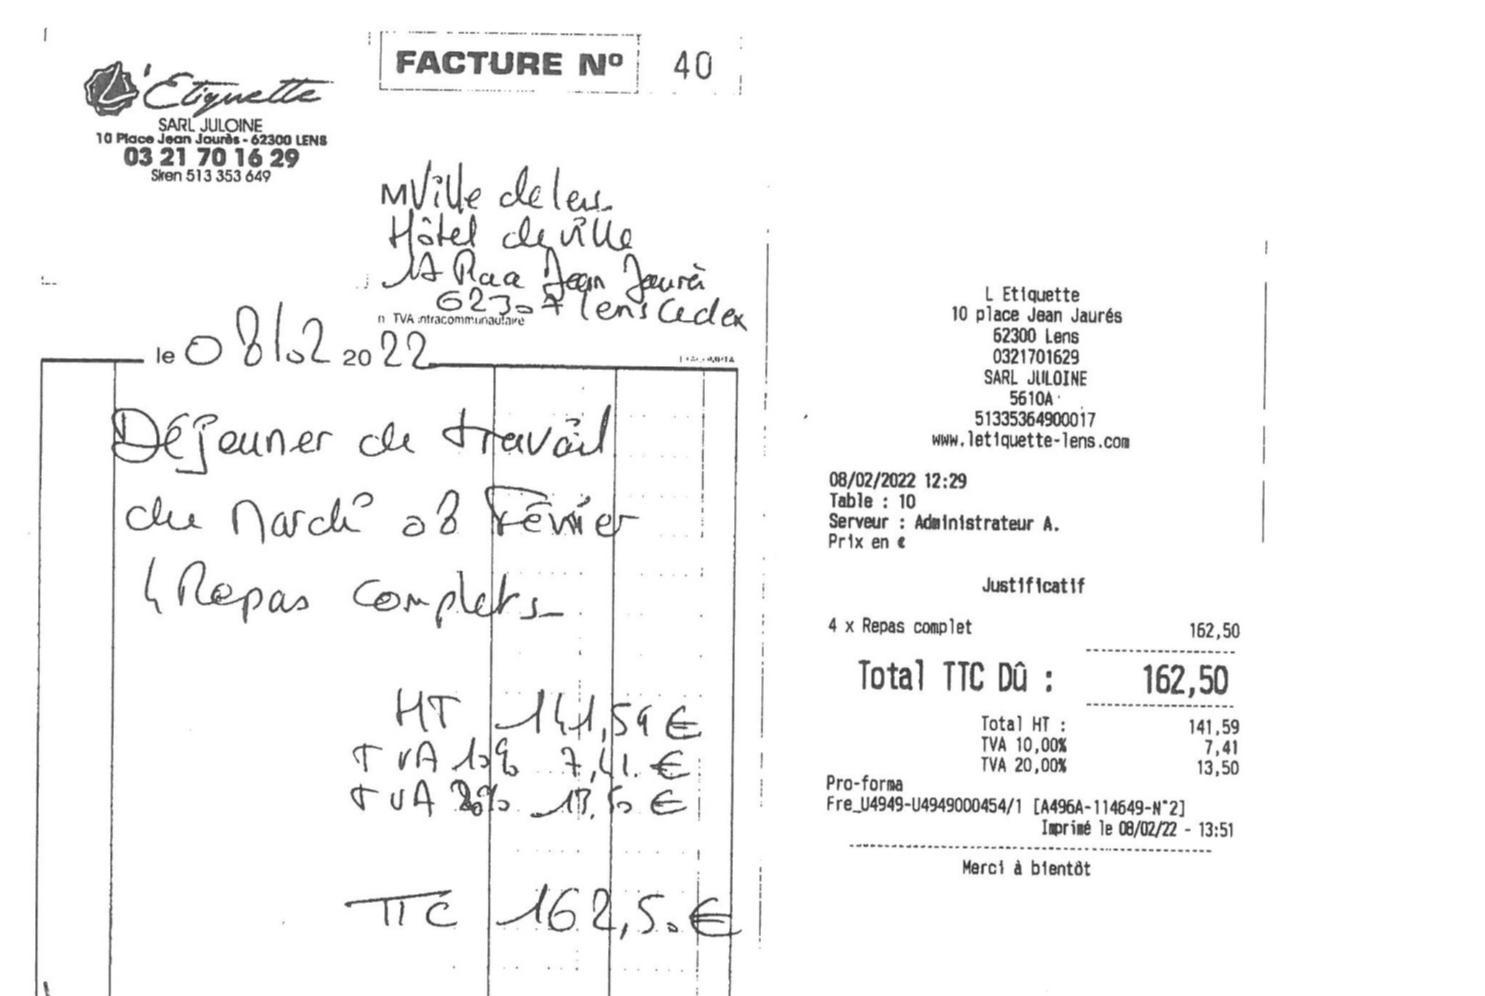 FACTURE Nº 40
L'Etiquette
SARL JULOINE
10 Place Jean Jaurès - 62300 LENS
03 21 70 16 29
Siren 513 353 649
M Ville de Lens
Hôtel de ville
17 Jean Jaurès
62307 Lens Cedex
n TVA intracommunautaire
le 08/02 2022
EXACOMPTA
Déjeuner de travail
du Mardi 08 Février
4 Repas complets
HT 141,59 €
TVA 10% 7,41 €
TVA 20% 13,50 €
TTC 162,50 €
L Etiquette
10 place Jean Jaurés
62300 Lens
0321701629
SARL JULOINE
5610A
51335364900017
www.letiquette-lens.com
08/02/2022 12:29
Table : 10
Serveur : Administrateur A.
Prix en €
Justificatif
4 x Repas complet 162,50
Total TTC Dû : 162,50
Total HT : 141,59
TVA 10,00% 7,41
TVA 20,00% 13,50
Pro-forma
Fre_U4949-U4949000454/1 [A496A-114649-N°2]
Imprimé le 08/02/22 - 13:51
Merci à bientôt